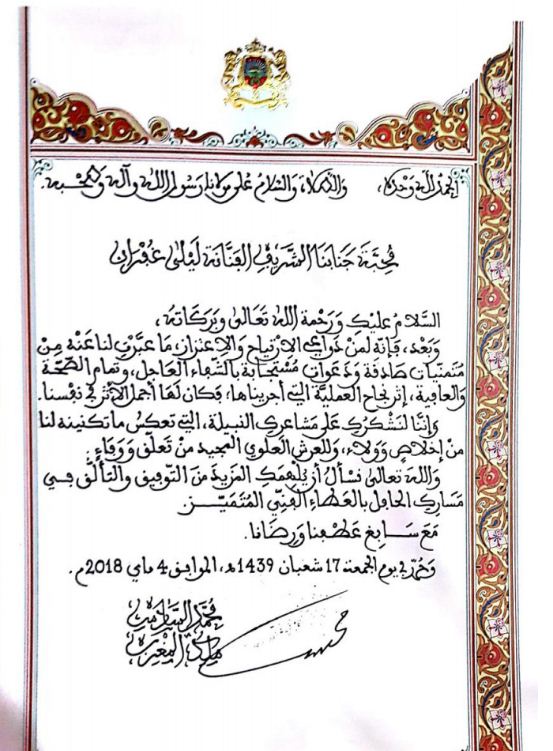 الحمد لله وحده، والصلاة والسلام على مولانا رسول الله وآله وصحبه.
محبة جنابنا الشريف الفنانة ليلى غفران
السلام عليك ورحمة الله تعالى وبركاته،
وبعد، فإنه لمن دواعي الارتياح والاعتزاز، ما عبرت لنا عنه من
متمنيات صادقة ودعوات مستجابة بالشفاء العاجل، وتمام الصحة
والعافية، إثر نجاح العملية التي أجريناها، فكان لها أجمل الأثر في نفسنا.
وإننا لنشكرك على مشاعرك النبيلة، التي تعكس ما تكنينه لنا
من إخلاص وولاء، وللعرش العلوي المجيد من تعلق ووفاء.
والله تعالى نسأل أن يلهمك المزيد من التوفيق والتألق في
مسارك الحافل بالعطاء الفني المتميز
مع سابغ عطفنا ورضانا.
وحرر في يوم الجمعة 17 شعبان 1439 هـ، الموافق 4 ماي 2018 م.
محمد السادس
ملك المغرب